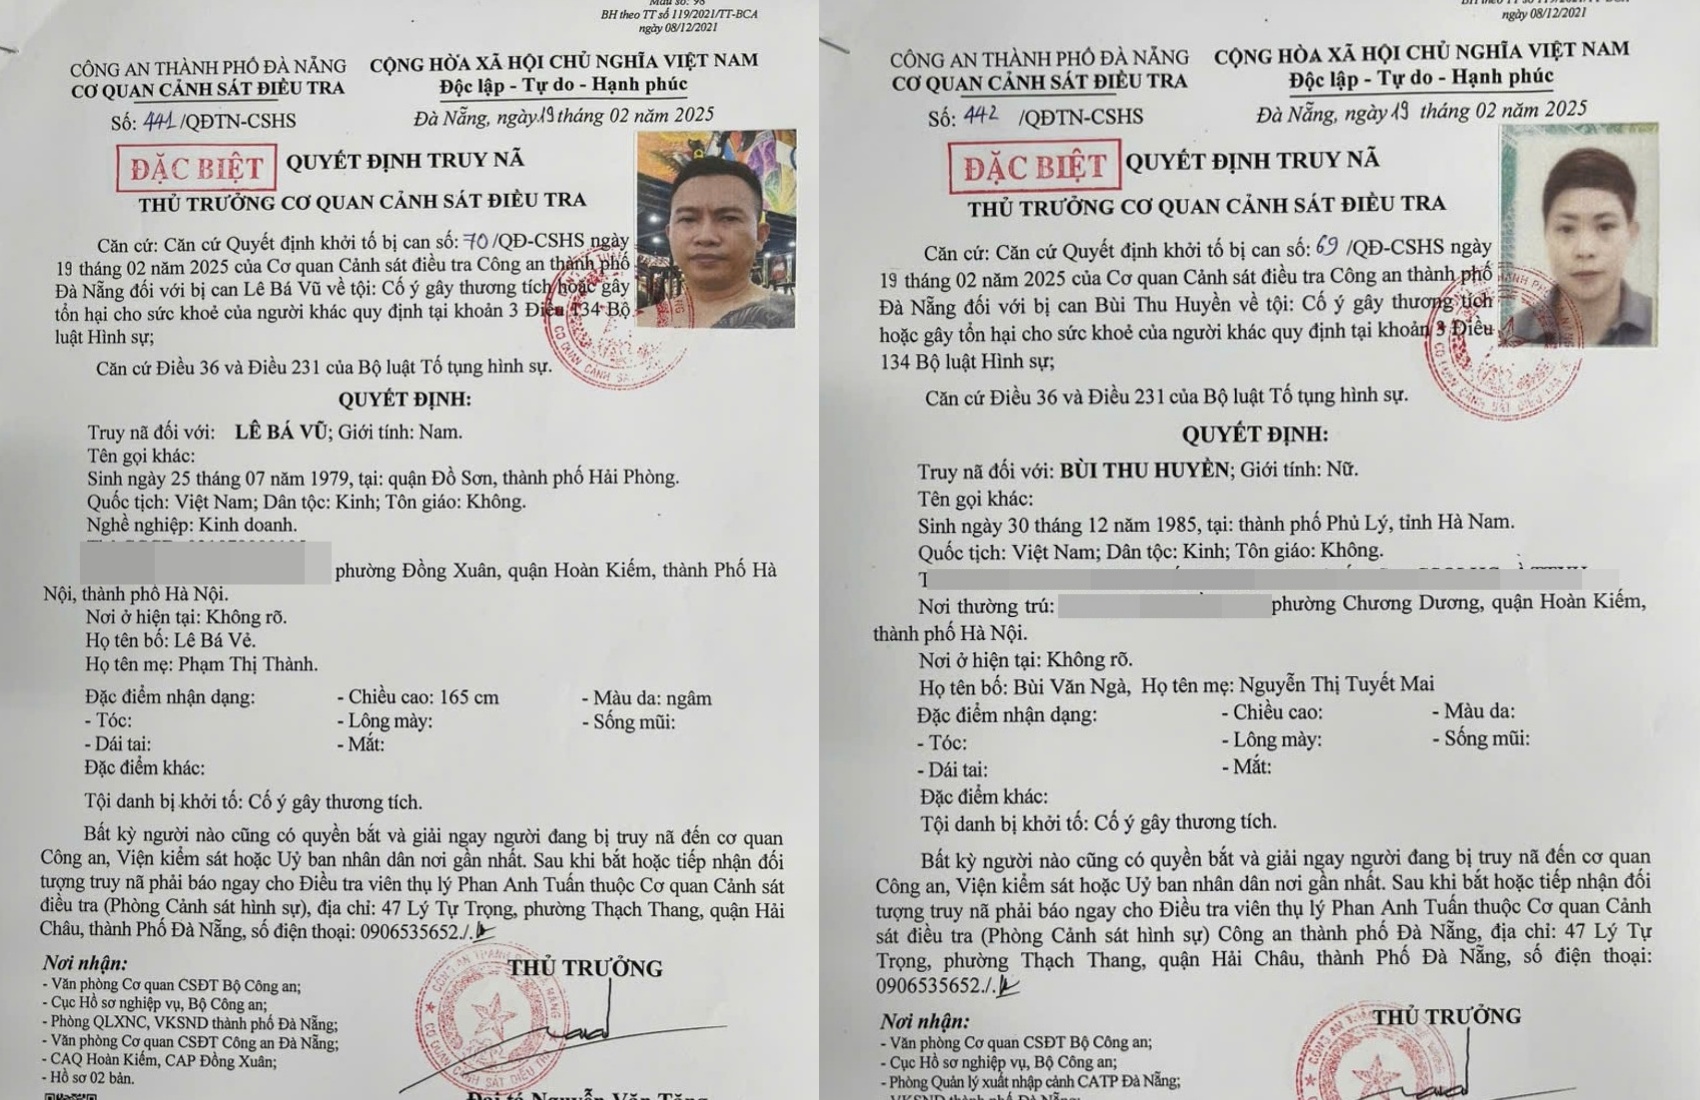 Mẫu số: 98
BH theo TT số 119/2021/TT-BCA
ngày 08/12/2021
CÔNG AN THÀNH PHỐ ĐÀ NẴNG
CƠ QUAN CẢNH SÁT ĐIỀU TRA
Số: 441/QĐTN-CSHS
CỘNG HÒA XÃ HỘI CHỦ NGHĨA VIỆT NAM
Độc lập - Tự do - Hạnh phúc
Đà Nẵng, ngày 19 tháng 02 năm 2025
ĐẶC BIỆT
QUYẾT ĐỊNH TRUY NÃ
THỦ TRƯỞNG CƠ QUAN CẢNH SÁT ĐIỀU TRA
Căn cứ: Căn cứ Quyết định khởi tố bị can số: 70/QĐ-CSHS ngày
19 tháng 02 năm 2025 của Cơ quan Cảnh sát điều tra Công an thành phố
Đà Nẵng đối với bị can Lê Bá Vũ về tội: Cố ý gây thương tích hoặc gây
tổn hại cho sức khoẻ của người khác quy định tại khoản 3 Điều 134 Bộ
luật Hình sự;
Căn cứ Điều 36 và Điều 231 của Bộ luật Tố tụng hình sự.
QUYẾT ĐỊNH:
Truy nã đối với: LÊ BÁ VŨ; Giới tính: Nam.
Tên gọi khác:
Sinh ngày 25 tháng 07 năm 1979, tại: quận Đồ Sơn, thành phố Hải Phòng.
Quốc tịch: Việt Nam; Dân tộc: Kinh; Tôn giáo: Không.
Nghề nghiệp: Kinh doanh.
phường Đồng Xuân, quận Hoàn Kiếm, thành Phố Hà
Nội, thành phố Hà Nội.
Nơi ở hiện tại: Không rõ.
Họ tên bố: Lê Bá Vẻ.
Họ tên mẹ: Phạm Thị Thành.
Đặc điểm nhận dạng: - Chiều cao: 165 cm - Màu da: ngâm
- Tóc: - Lông mày: - Sống mũi:
- Dái tai: - Mắt:
Đặc điểm khác:
Tội danh bị khởi tố: Cố ý gây thương tích.
Bất kỳ người nào cũng có quyền bắt và giải ngay người đang bị truy nã đến cơ quan
Công an, Viện kiểm sát hoặc Uỷ ban nhân dân nơi gần nhất. Sau khi bắt hoặc tiếp nhận đối
tượng truy nã phải báo ngay cho Điều tra viên thụ lý Phan Anh Tuấn thuộc Cơ quan Cảnh sát
điều tra (Phòng Cảnh sát hình sự), địa chỉ: 47 Lý Tự Trọng, phường Thạch Thang, quận Hải
Châu, thành Phố Đà Nẵng, số điện thoại: 0906535652./.
Nơi nhận:
- Văn phòng Cơ quan CSĐT Bộ Công an;
- Cục Hồ sơ nghiệp vụ, Bộ Công an;
- Phòng QLXNC, VKSND thành phố Đà Nẵng;
- Văn phòng Cơ quan CSĐT Công an Đà Nẵng;
- CAQ Hoàn Kiếm, CAP Đồng Xuân;
- Hồ sơ 02 bản.
THỦ TRƯỞNG
Đại tá Nguyễn Văn Tăng
BH theo TT số 119/2021/TT-BCA
ngày 08/12/2021
CÔNG AN THÀNH PHỐ ĐÀ NẴNG
CƠ QUAN CẢNH SÁT ĐIỀU TRA
Số: 442 /QĐTN-CSHS
CỘNG HÒA XÃ HỘI CHỦ NGHĨA VIỆT NAM
Độc lập - Tự do - Hạnh phúc
Đà Nẵng, ngày 19 tháng 02 năm 2025
ĐẶC BIỆT
QUYẾT ĐỊNH TRUY NÃ
THỦ TRƯỞNG CƠ QUAN CẢNH SÁT ĐIỀU TRA
Căn cứ: Căn cứ Quyết định khởi tố bị can số: 69 /QĐ-CSHS ngày
19 tháng 02 năm 2025 của Cơ quan Cảnh sát điều tra Công an thành phố
Đà Nẵng đối với bị can Bùi Thu Huyền về tội: Cố ý gây thương tích
hoặc gây tổn hại cho sức khoẻ của người khác quy định tại khoản 3 Điều
134 Bộ luật Hình sự;
Căn cứ Điều 36 và Điều 231 của Bộ luật Tố tụng hình sự.
QUYẾT ĐỊNH:
Truy nã đối với: BÙI THU HUYỀN; Giới tính: Nữ.
Tên gọi khác:
Sinh ngày 30 tháng 12 năm 1985, tại: thành phố Phủ Lý, tỉnh Hà Nam.
Quốc tịch: Việt Nam; Dân tộc: Kinh; Tôn giáo: Không.
Nơi thường trú: phường Chương Dương, quận Hoàn Kiếm,
thành phố Hà Nội.
Nơi ở hiện tại: Không rõ.
Họ tên bố: Bùi Văn Ngà, Họ tên mẹ: Nguyễn Thị Tuyết Mai
Đặc điểm nhận dạng: - Chiều cao: - Màu da:
- Tóc: - Lông mày: - Sống mũi:
- Dái tai: - Mắt:
Đặc điểm khác:
Tội danh bị khởi tố: Cố ý gây thương tích.
Bất kỳ người nào cũng có quyền bắt và giải ngay người đang bị truy nã đến cơ quan
Công an, Viện kiểm sát hoặc Uỷ ban nhân dân nơi gần nhất. Sau khi bắt hoặc tiếp nhận đối
tượng truy nã phải báo ngay cho Điều tra viên thụ lý Phan Anh Tuấn thuộc Cơ quan Cảnh
sát điều tra (Phòng Cảnh sát hình sự) Công an thành phố Đà Nẵng, địa chỉ: 47 Lý Tự
Trọng, phường Thạch Thang, quận Hải Châu, thành Phố Đà Nẵng, số điện thoại:
0906535652./.
Nơi nhận:
- Văn phòng Cơ quan CSĐT Bộ Công an;
- Cục Hồ sơ nghiệp vụ, Bộ Công an;
- Phòng Quản lý xuất nhập cảnh CATP Đà Nẵng;
THỦ TRƯỞNG